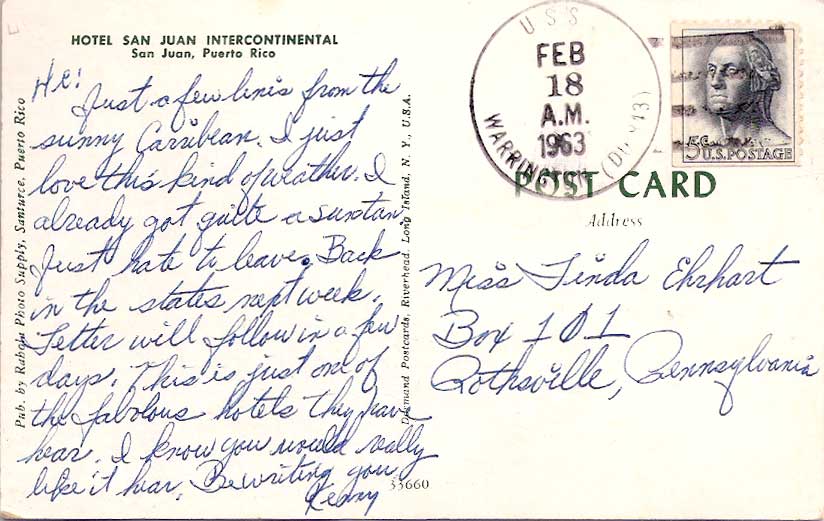 HOTEL SAN JUAN INTERCONTINENTAL
San Juan, Puerto Rico
Hi!
Just a few lines from the
sunny Carribean. I just
love this kind of weather. I
already got quite a suntan.
Just hate to leave. Back
in the states next week.
Letter will follow in a few
days. This is just one of
the fabolous hotels they have
hear. I know you would really
like it hear. Be writing you
Kenny
Pub. by Rahola Photo Supply, Santurce, Puerto Rico
Dexmand Postcards, Riverhead, Long Island, N. Y., U.S.A.
33660
U S S
FEB
18
A.M.
1963
WARRINGTON (DD 843)
5c
U.S. POSTAGE
POST CARD
Address
Miss Linda Ehrhart
Box 101
Rothsville, Pennsylvania